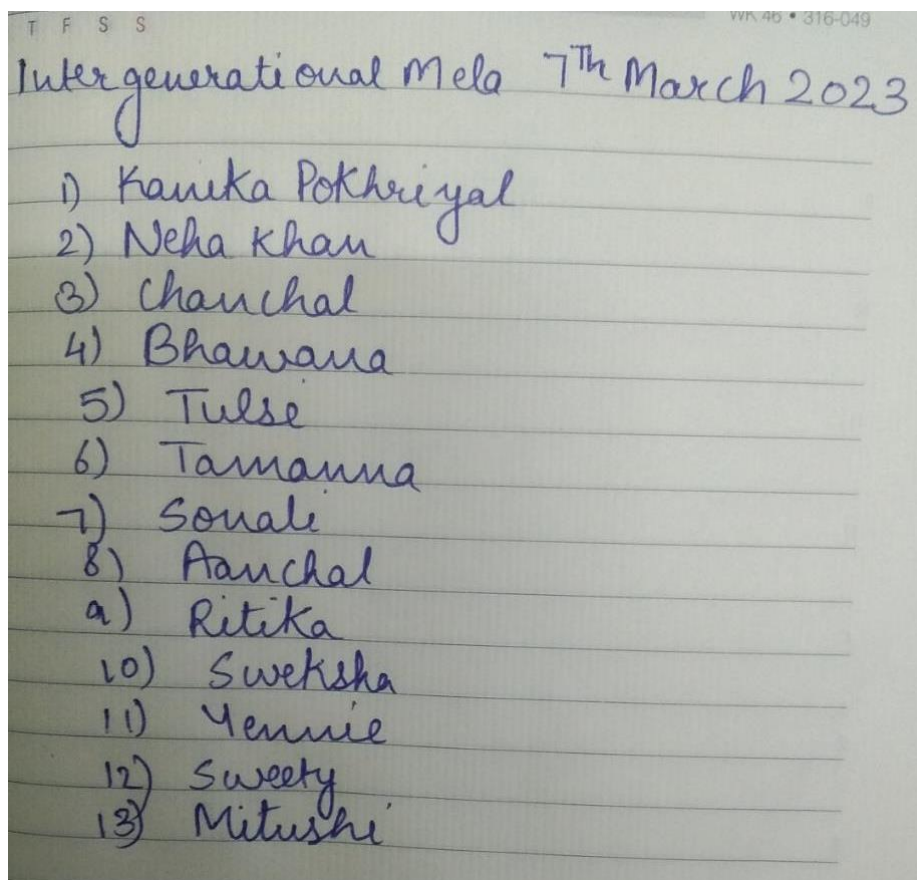 T F S S
WK 46 • 316-049
Intergenerational Mela 7Th March 2023
1) Kanika Pokhriyal
2) Neha Khan
3) Chanchal
4) Bhawana
5) Tulsi
6) Tamanna
7) Sonali
8) Aanchal
9) Ritika
10) Sweksha
11) Yennie
12) Sweety
13) Mitushi